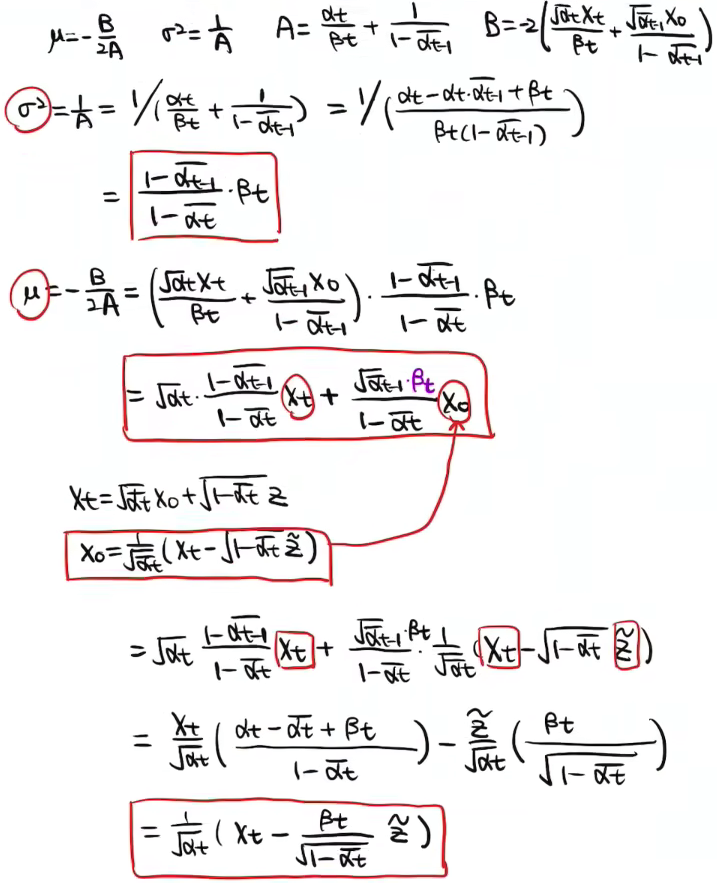 μ=-B/2A σ²=1/A A=αt/βt + 1/(1-α̅t-1) B=-2(√αt Xt/βt + √α̅t-1 X0/(1-α̅t-1))
σ²=1/A=1/(αt/βt + 1/(1-α̅t-1)) = 1/((αt-αt·α̅t-1+βt)/(βt(1-α̅t-1)))
= (1-α̅t-1)/(1-α̅t)·βt
μ=-B/2A=(√αt Xt/βt + √α̅t-1 X0/(1-α̅t-1))·(1-α̅t-1)/(1-α̅t)·βt
=√αt·(1-α̅t-1)/(1-α̅t) Xt + (√α̅t-1·βt)/(1-α̅t) X0
Xt=√α̅t X0+√(1-α̅t) z
X0=1/√α̅t (Xt-√(1-α̅t) z̃)
=√αt (1-α̅t-1)/(1-α̅t) Xt + (√α̅t-1·βt)/(1-α̅t)·1/√α̅t (Xt-√(1-α̅t) z̃)
= Xt/√αt ((αt-α̅t+βt)/(1-α̅t)) - z̃/√αt (βt/√(1-α̅t))
= 1/√αt (Xt - βt/√(1-α̅t) z̃)